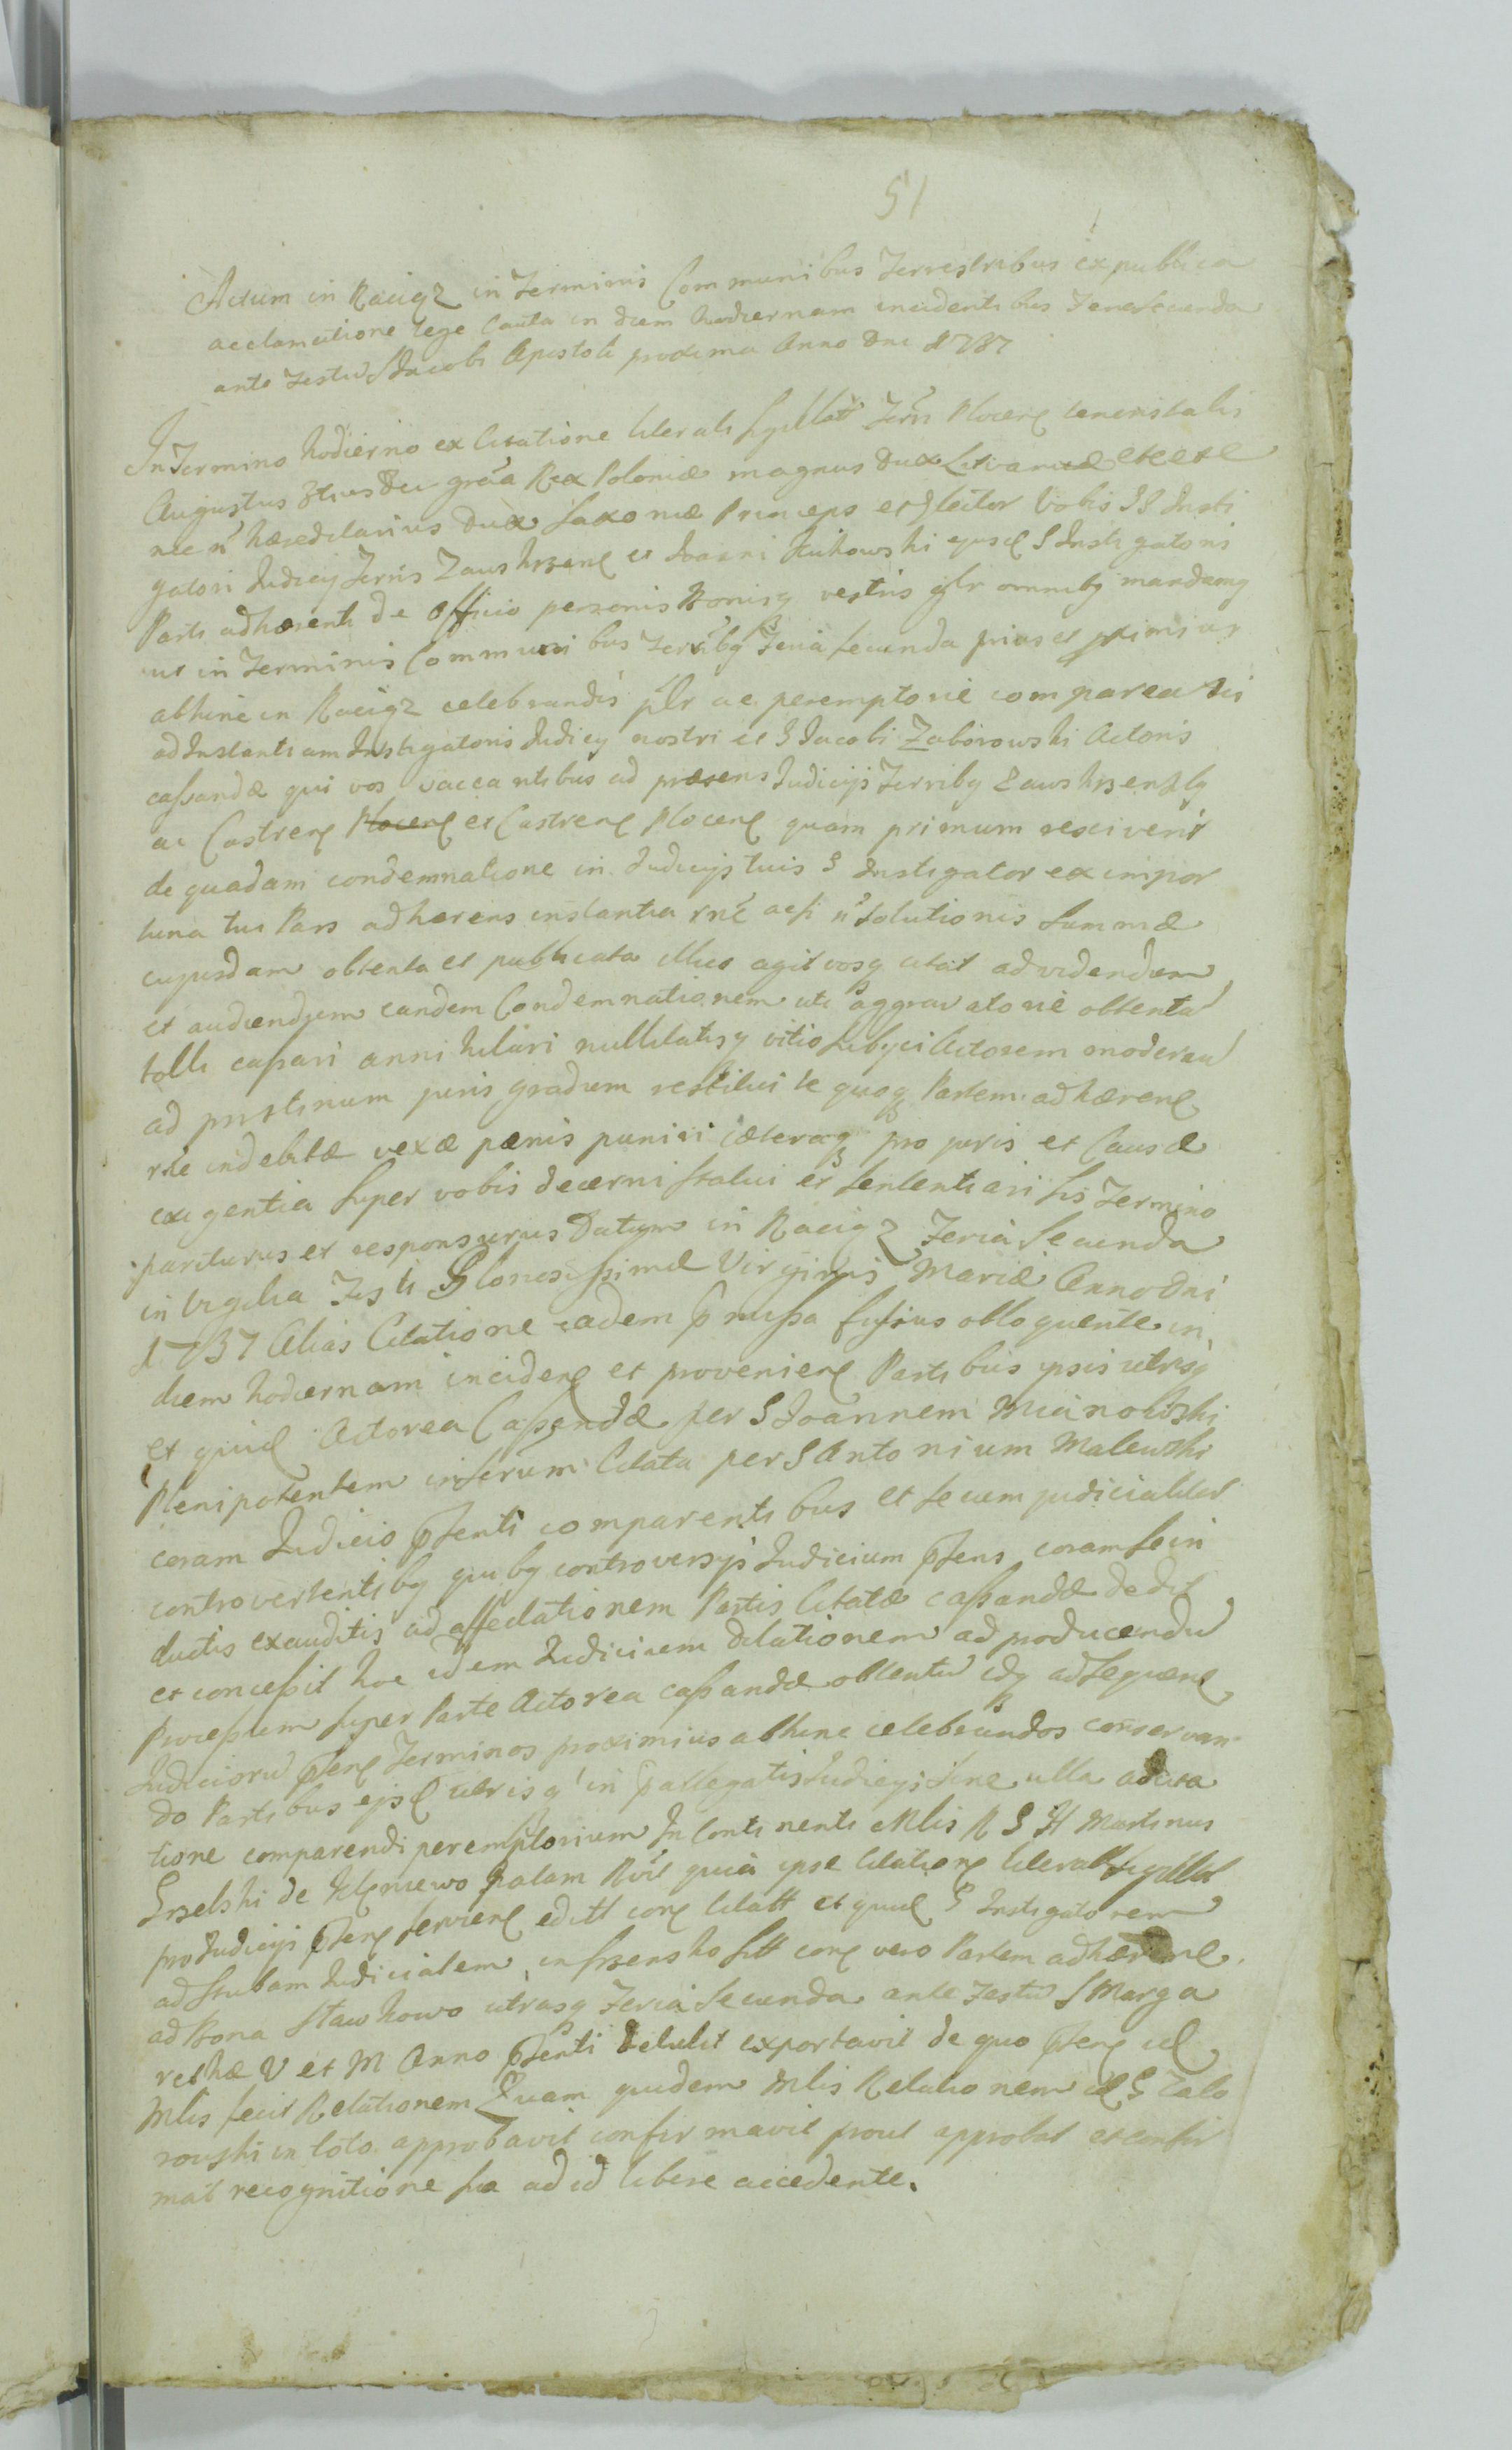 51
Actum in Raciąz in Terminis Communibus Terrestribus ex publica
acclamatione lege Cauta in diem hodiernam incidentibus Feria secunda
ante Festu S Jacobi Apostoli proxima Anno Dni 1737
In Termino hodierno ex Citatione literali sigillat Terrs Plocen tenoris talis
Augustus 3tius Dei gra Rex Poloniæ magnus Dux Litvaniæ etcete
nec n hæreditarius Dux Saxoniæ Princeps et Elector Vobis S Insti
gatori Judicij Terris Zawskrzen et Joanni Kukowski ejusd S Instigatoris
Parti adhærenti de Officio personis Bonisq vestris glr omnibq mandamq
ut in Terminis Communibus Terribq Feria secunda prius et primius
abhinc in Raciąz celebrandis plr ac peremptorie compareatis
ad Instantiam Instigatoris Judicij nostri et S Jacobi Zaborowski Actoris
cassandæ qui vos vaccantibus ad præsens Judicijs Terribq Zawskrzensbq
ac Castren Plocen et Castren Plocen quam primum resciverit
de quadam condemnatione in Judicijs tuis S Instigator ex impor
tuna tui Pars adhærens instantia rne acsi n solutionis summæ
cujusdam obtenta et publicata illico agit vosq citat ad videndum
et audiendum eandem Condemnationem uti aggravatorie obtenta
tolli cassari annihilari nullitatisq vitio subijci Actorem moderna
ad pristinum juris gradum restitui te quoq Partem adhæren
rne indebitæ vexæ pænis puniri cæteraq pro juris et Causæ
exigentia super vobis decerni statui et sententiari sis Termino
pariturus et responsurus Datum in Raciąz Feria Secunda
in Vigilia Festi Gloriosissimæ Virginis Mariæ Anno Dni
1737 Alias Citatione eadem præmissa fusius obloquente in
diem hodiernam inciden et provenien Partibus ipsis utrisq
et quid Actorea Cassandæ per S Joannem Mianobitzki
Plenipotentem inserum Citata per S Antonium Malewski
coram Judicio psenti comparentibus et secum judicialiter
controvertentibq quibq controversijs Judicium psens coram se in
ductis exauditis ad affectationem Partis Citatæ cassandæ dedit
et concessit hoc idem Judicium dilationem ad producendu
Processum super Parte Actorea cassandæ obtentu idq ad sequen
Judicioru psen Terminos proximius abhinc celebrandos conservan-
do Partibus ejsd utrisq in pallegatis Judicijs sine ulla adcita
tione comparendi peremptorium In Continenti Mlis R S H Martinus
Grzelski de Kleniewo palam Rvit quia ipse Citationen literal sigillat
pro Judicijs psen servien editt con Citatt et quid S Instigatorem
ad Stubam Judicialem in Szrensko sitt con vero Partem adhæren
ad Bona Stawkowo utrasq Feria Secunda ante Festu S Marga
rethæ V et M Anno psenti detulit exportavit de quo psens id
Mlis fecit Relationem Quam quidem Mlis Relationem id S Zabo
rowski in toto approbavit confirmavit prout approbat et confir
mat recognitione sua ad id libere accedente.